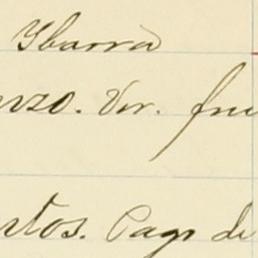 Ybarra
nzo. Ver. fru
rtos. Pago de